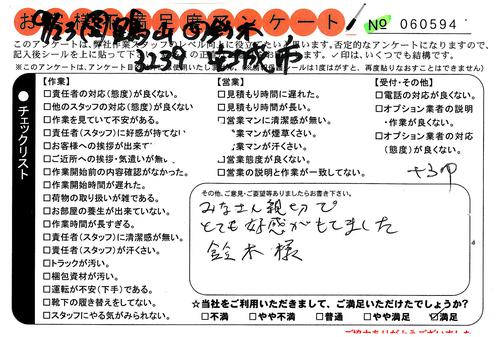 お客様満足度アンケート
No 060594
このアンケートは、弊社作業スタッフのレベル向上に役立てたいと思います。否定的なアンケートになりますので、
記入後シールを上に貼って下さい。✓印は、いくつでも結構です。
チェックリスト
【作業】
□責任者の対応(態度)が良くない。
□他のスタッフの対応(態度)が良くない。
□作業を見ていて不安がある。
□責任者(スタッフ)に好感が持てない
□お客様への挨拶が出来て
□ご近所への挨拶・気遣いが無
□作業開始前の内容確認がなかった。
□作業開始時間が遅れた。
□荷物の取り扱いが雑である。
□お部屋の養生が出来ていない。
□作業時間が長すぎる。
□責任者(スタッフ)に清潔感が無い。
□責任者(スタッフ)が汗くさい。
□トラックが汚い。
□梱包資材が汚い。
□運転が不安(下手)である。
□靴下の履き替えをしてない。
□スタッフにやる気がみられない。
【営業】
□見積もり時間に遅れた。
□見積もり時間が長い。
□営業マンに清潔感が無い。
業マンが煙草くさい。
業マンが汗くさい。
□営業態度が良くない。
□営業の説明と作業が一致してない。
【受付・その他】
□電話の対応が良くない。
□オプション業者の説明
・作業が良くない。
□オプション業者の対応
(態度)が良くない。
その他、ご意見・ご要望等ありましたらお書き下さい。
みなさん親切で
とても好感がもてました
鈴木様
☆当社をご利用いただきまして、ご満足いただけたでしょうか?
□不満 □やや不満 □普通 □やや満足 ☑満足
ご協力ありがとうございました